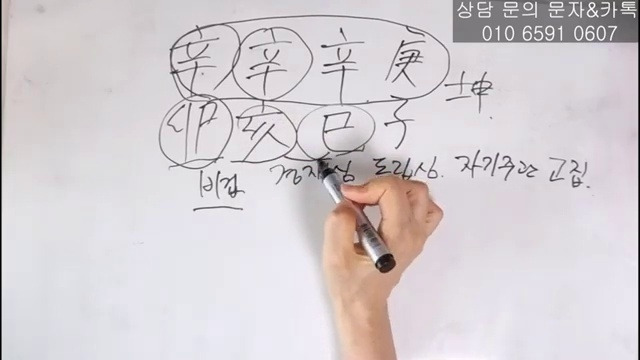 상담 문의 문자&카톡
010 6591 0607
辛 辛 辛 庚
坤
卯 亥 巳 子
비겁 경쟁심 독립심. 자기주관 고집.